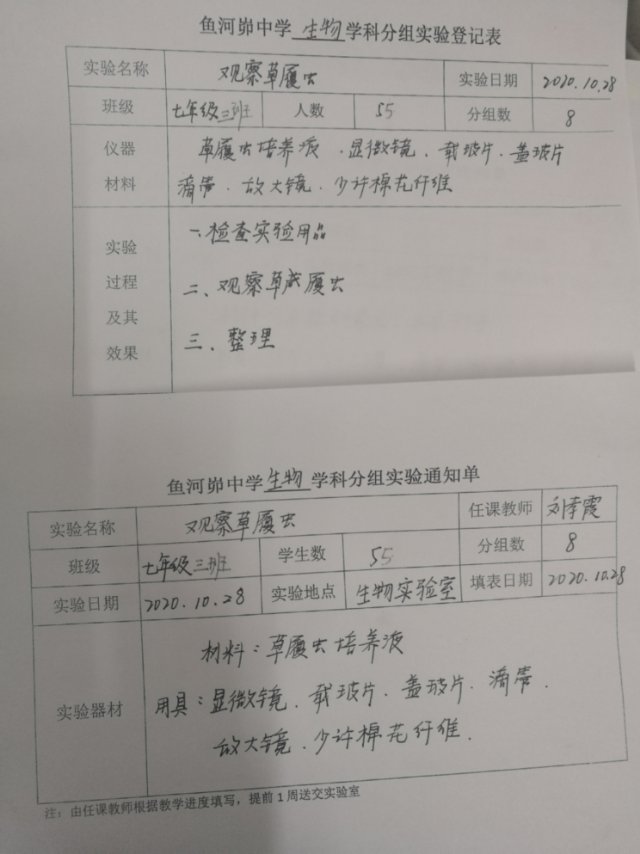 鱼河峁中学 生物 学科分组实验登记表
实验名称 观察草履虫 实验日期 2020.10.28
班级 七年级三班 人数 55 分组数 8
仪器 草履虫培养液、显微镜、载玻片、盖玻片
材料 滴管、放大镜、少许棉花纤维
一、检查实验用品
实验
过程 二、观察草履虫
及其
效果 三、整理
鱼河峁中学 生物 学科分组实验通知单
实验名称 观察草履虫 任课教师 刘李霞
班级 七年级三班 学生数 55 分组数 8
实验日期 2020.10.28 实验地点 生物实验室 填表日期 2020.10.28
材料：草履虫培养液
实验器材 用具：显微镜、载玻片、盖玻片、滴管、
放大镜、少许棉花纤维.
注：由任课教师根据教学进度填写，提前1周送交实验室